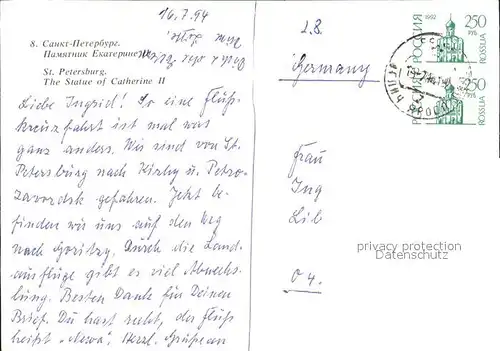 16.7.94
8. Санкт-Петербург.
Памятник Екатерине
St. Petersburg.
The Statue of Catherine II
Liebe Ingrid! So eine Fluß-
kreuzfahrt ist mal was
ganz anders. Wir sind von St.
Petersburg nach Kishy u. Petro-
zavodsk gefahren. Jetzt be-
finden wir uns auf dem Weg
nach Goritzy. Durch die Land-
ausflüge gibt es viel Abwechs-
lung. Besten Dank für Deinen
Brief. Du hast recht, der Fluß
heißt „Newa“. Herzl. Grüße an
L.B.
Germany
РОССИЯ 1992 250 РУБ ROSSIJA
РОССИЯ 250 ROSSIJA
Frau
Ing
Lib
04.
privacy protection
Datenschutz